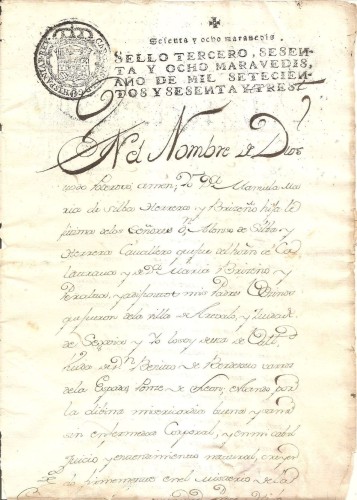 Sesenta y ocho maravedis
SELLO TERCERO, SESEN
TA Y OCHO MARAVEDIS,
AÑO DE MIL SETECIEN
TOS Y SESENTA Y TRES.
En el Nombre de Dios
todo Poderoso amen, D.ª Manuela Ma
ria de Silba Herrera y Briseño hija le
jitima de los Señores D.n Alonso de Silba y
Herrera Cavallero que fue del horn de Ca
latraua y de D.ª Maria Briseño y
Peralta, ya difuntos mis Padres
que fueron de la villa de Arevalo, y
de Segovia y
Viuda de D.n Benito de
de la Ponze de Leon, estando por
la dibina misericordia buena y sana
sin enfermedad Corporal, y en mi cabal
Juicio y entendimiento natural, creyen
do firmemente en el Misterio de la